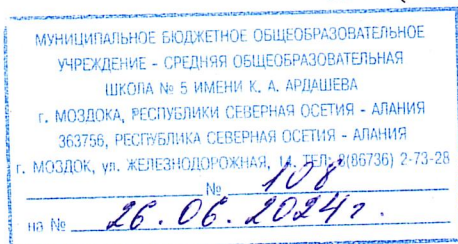 МУНИЦИПАЛЬНОЕ БЮДЖЕТНОЕ ОБЩЕОБРАЗОВАТЕЛЬНОЕ
УЧРЕЖДЕНИЕ - СРЕДНЯЯ ОБЩЕОБРАЗОВАТЕЛЬНАЯ
ШКОЛА № 5 ИМЕНИ К. А. АРДАШЕВА
г. МОЗДОКА, РЕСПУБЛИКИ СЕВЕРНАЯ ОСЕТИЯ - АЛАНИЯ
363756, РЕСПУБЛИКА СЕВЕРНАЯ ОСЕТИЯ - АЛАНИЯ
г. МОЗДОК, ул. ЖЕЛЕЗНОДОРОЖНАЯ, 14. ТЕЛ: 8(86736) 2-73-28
№ 108
на № 26.06.2024г.